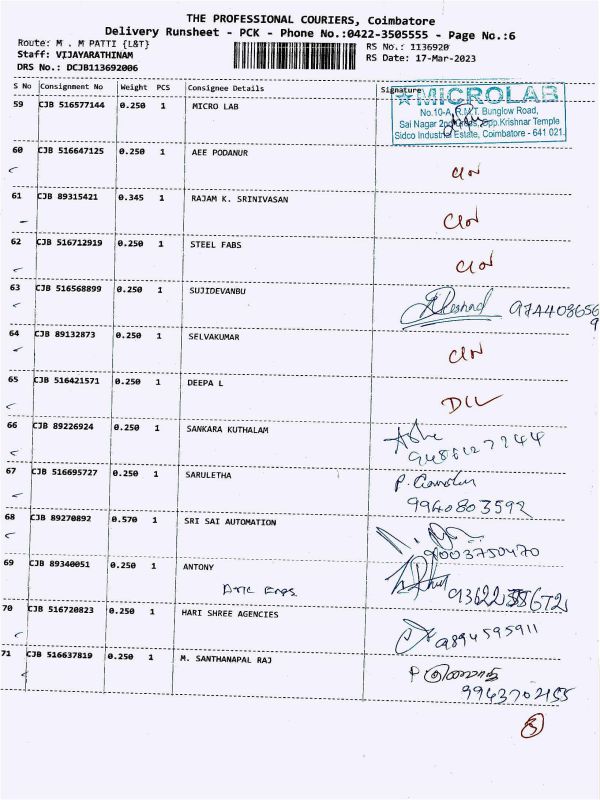 THE PROFESSIONAL COURIERS, Coimbatore
Delivery Runsheet - PCK - Phone No.:0422-3505555 - Page No.:6
Route: M . M PATTI {L&T}
RS No.: 1136920
Staff: VIJAYARATHINAM
RS Date: 17-Mar-2023
DRS No.: DCJB113692006
S No Consignment No Weight PCS Consignee Details Signature
59 CJB 516577144 0.250 1 MICRO LAB
MICROLAB
No.10-A, R.M.T. Bunglow Road,
Sai Nagar 2nd Cross, Opp.Krishnar Temple
Sidco Industrial Estate, Coimbatore - 641 021.
60 CJB 516647125 0.250 1 AEE PODANUR
61 CJB 89315421 0.345 1 RAJAM K. SRINIVASAN
62 CJB 516712919 0.250 1 STEEL FABS
63 CJB 516568899 0.250 1 SUJIDEVANBU
9744086569
64 CJB 89132873 0.250 1 SELVAKUMAR
65 CJB 516421571 0.250 1 DEEPA L
D/L
66 CJB 89226924 0.250 1 SANKARA KUTHALAM
67 CJB 516695727 0.250 1 SARULETHA
9940803592
68 CJB 89270892 0.570 1 SRI SAI AUTOMATION
9003750470
69 CJB 89340051 0.250 1 ANTONY
70 CJB 516720823 0.250 1 HARI SHREE AGENCIES
9894595911
71 CJB 516637819 0.250 1 M. SANTHANAPAL RAJ
9943702155
3